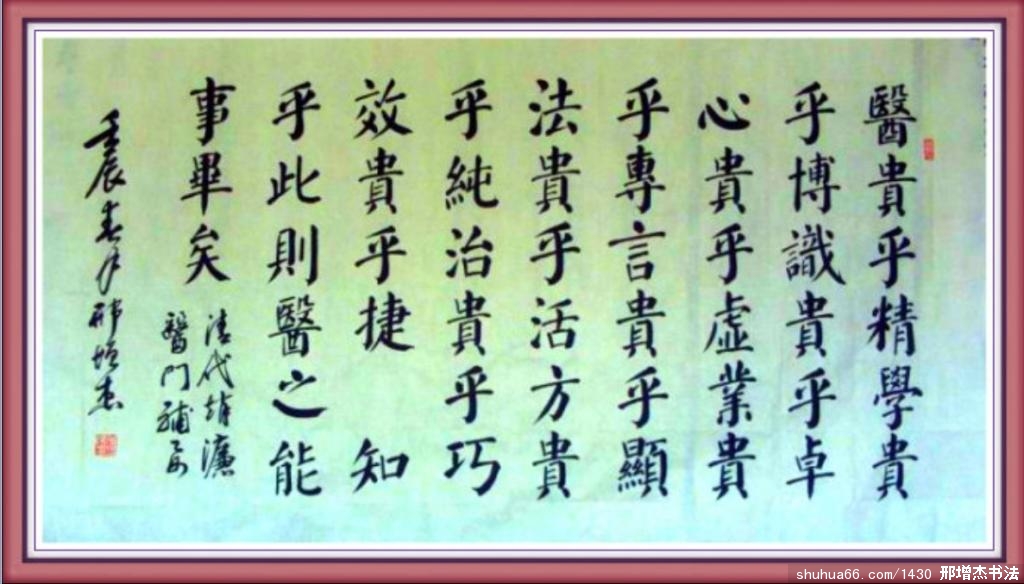 醫貴乎精學貴
乎博識貴乎卓
心貴乎虛業貴
乎專言貴乎顯
法貴乎活方貴
乎純治貴乎巧
效貴乎捷知
乎此則醫之能
事畢矣
清代趙濂
醫門補要
壬辰春月邢增杰
shuhua66.com/1430 邢增杰书法